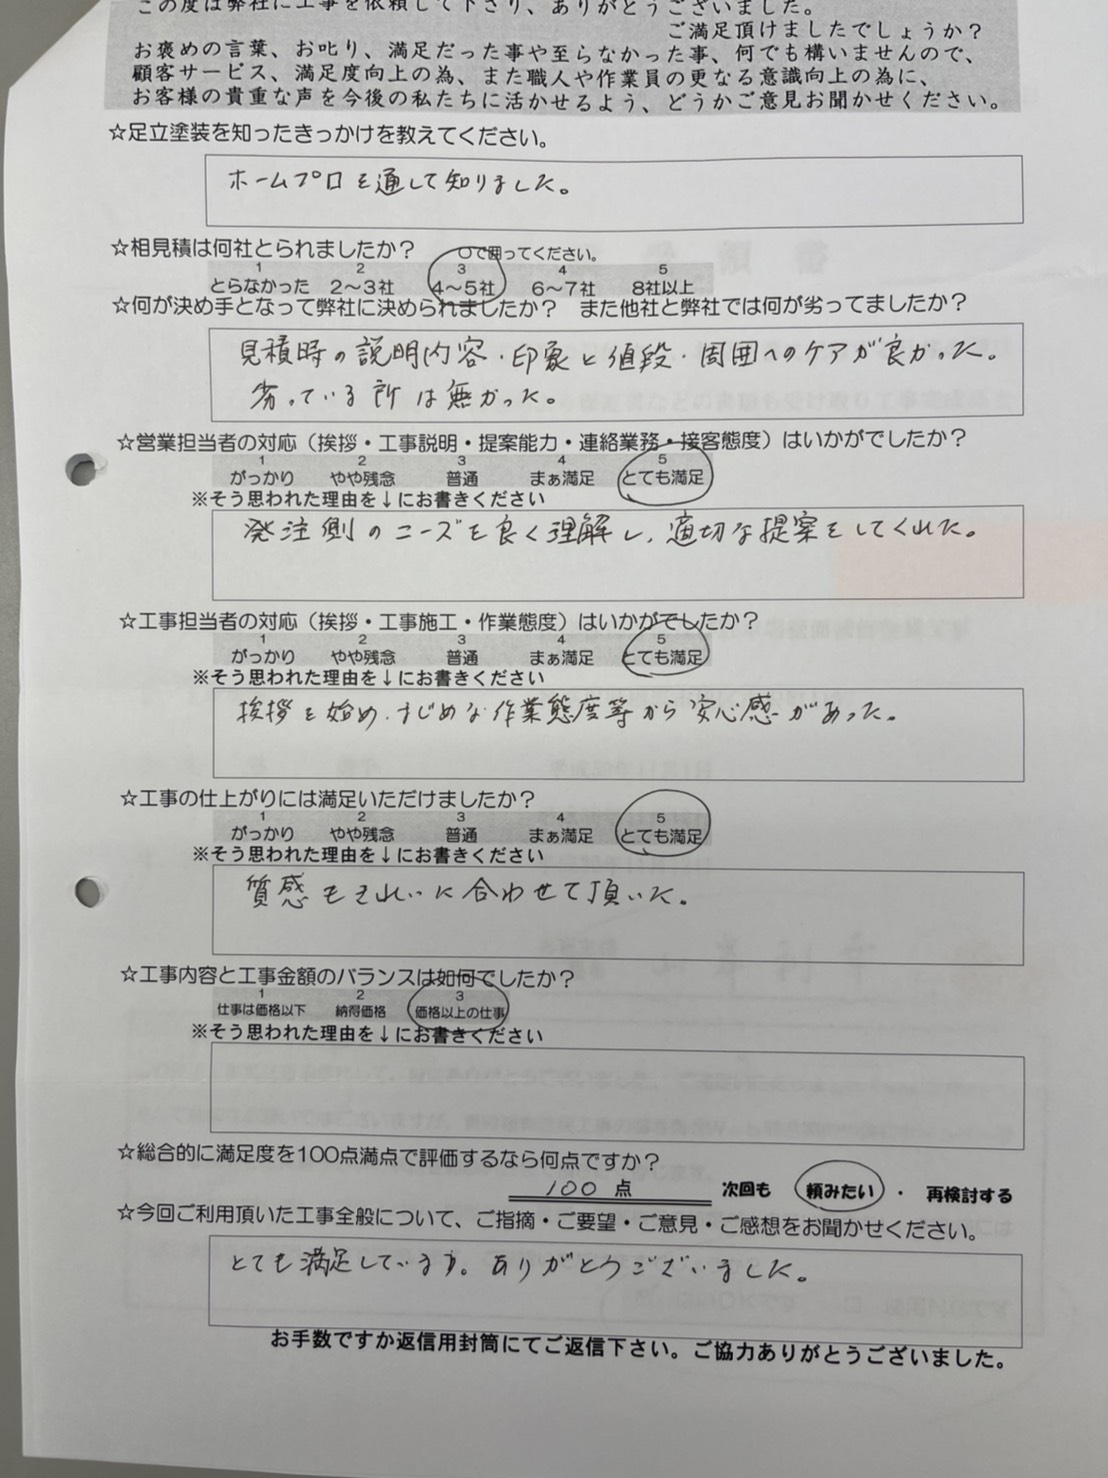 この度は弊社に工事を依頼して下さり、ありがとうございました。
ご満足頂けましたでしょうか？
お褒めの言葉、お叱り、満足だった事や至らなかった事、何でも構いませんので、
顧客サービス、満足度向上の為、また職人や作業員の更なる意識向上の為に、
お客様の貴重な声を今後の私たちに活かせるよう、どうかご意見お聞かせください。
☆足立塗装を知ったきっかけを教えてください。
ホームプロを通して知りました。
☆相見積は何社とられましたか？　○で囲ってください。
1 2 3 4 5
とらなかった 2〜3社 4〜5社 6〜7社 8社以上
☆何が決め手となって弊社に決められましたか？　また他社と弊社では何が劣ってましたか？
見積時の説明内容・印象と値段・周囲へのケアが良かった。
劣っている所は無かった。
☆営業担当者の対応（挨拶・工事説明・提案能力・連絡業務・接客態度）はいかがでしたか？
1 2 3 4 5
がっかり やや残念 普通 まぁ満足 とても満足
※そう思われた理由を↓にお書きください
発注側のニーズを良く理解し、適切な提案をしてくれた。
☆工事担当者の対応（挨拶・工事施工・作業態度）はいかがでしたか？
1 2 3 4 5
がっかり やや残念 普通 まぁ満足 とても満足
※そう思われた理由を↓にお書きください
挨拶を始め、まじめな作業態度等から安心感があった。
☆工事の仕上がりには満足いただけましたか？
1 2 3 4 5
がっかり やや残念 普通 まぁ満足 とても満足
※そう思われた理由を↓にお書きください
質感もきれいに合わせて頂いた。
☆工事内容と工事金額のバランスは如何でしたか？
1 2 3
仕事は価格以下 納得価格 価格以上の仕事
※そう思われた理由を↓にお書きください
☆総合的に満足度を100点満点で評価するなら何点ですか？
100 点 次回も 頼みたい ・ 再検討する
☆今回ご利用頂いた工事全般について、ご指摘・ご要望・ご意見・ご感想をお聞かせください。
とても満足しています。ありがとうございました。
お手数ですが返信用封筒にてご返信下さい。ご協力ありがとうございました。